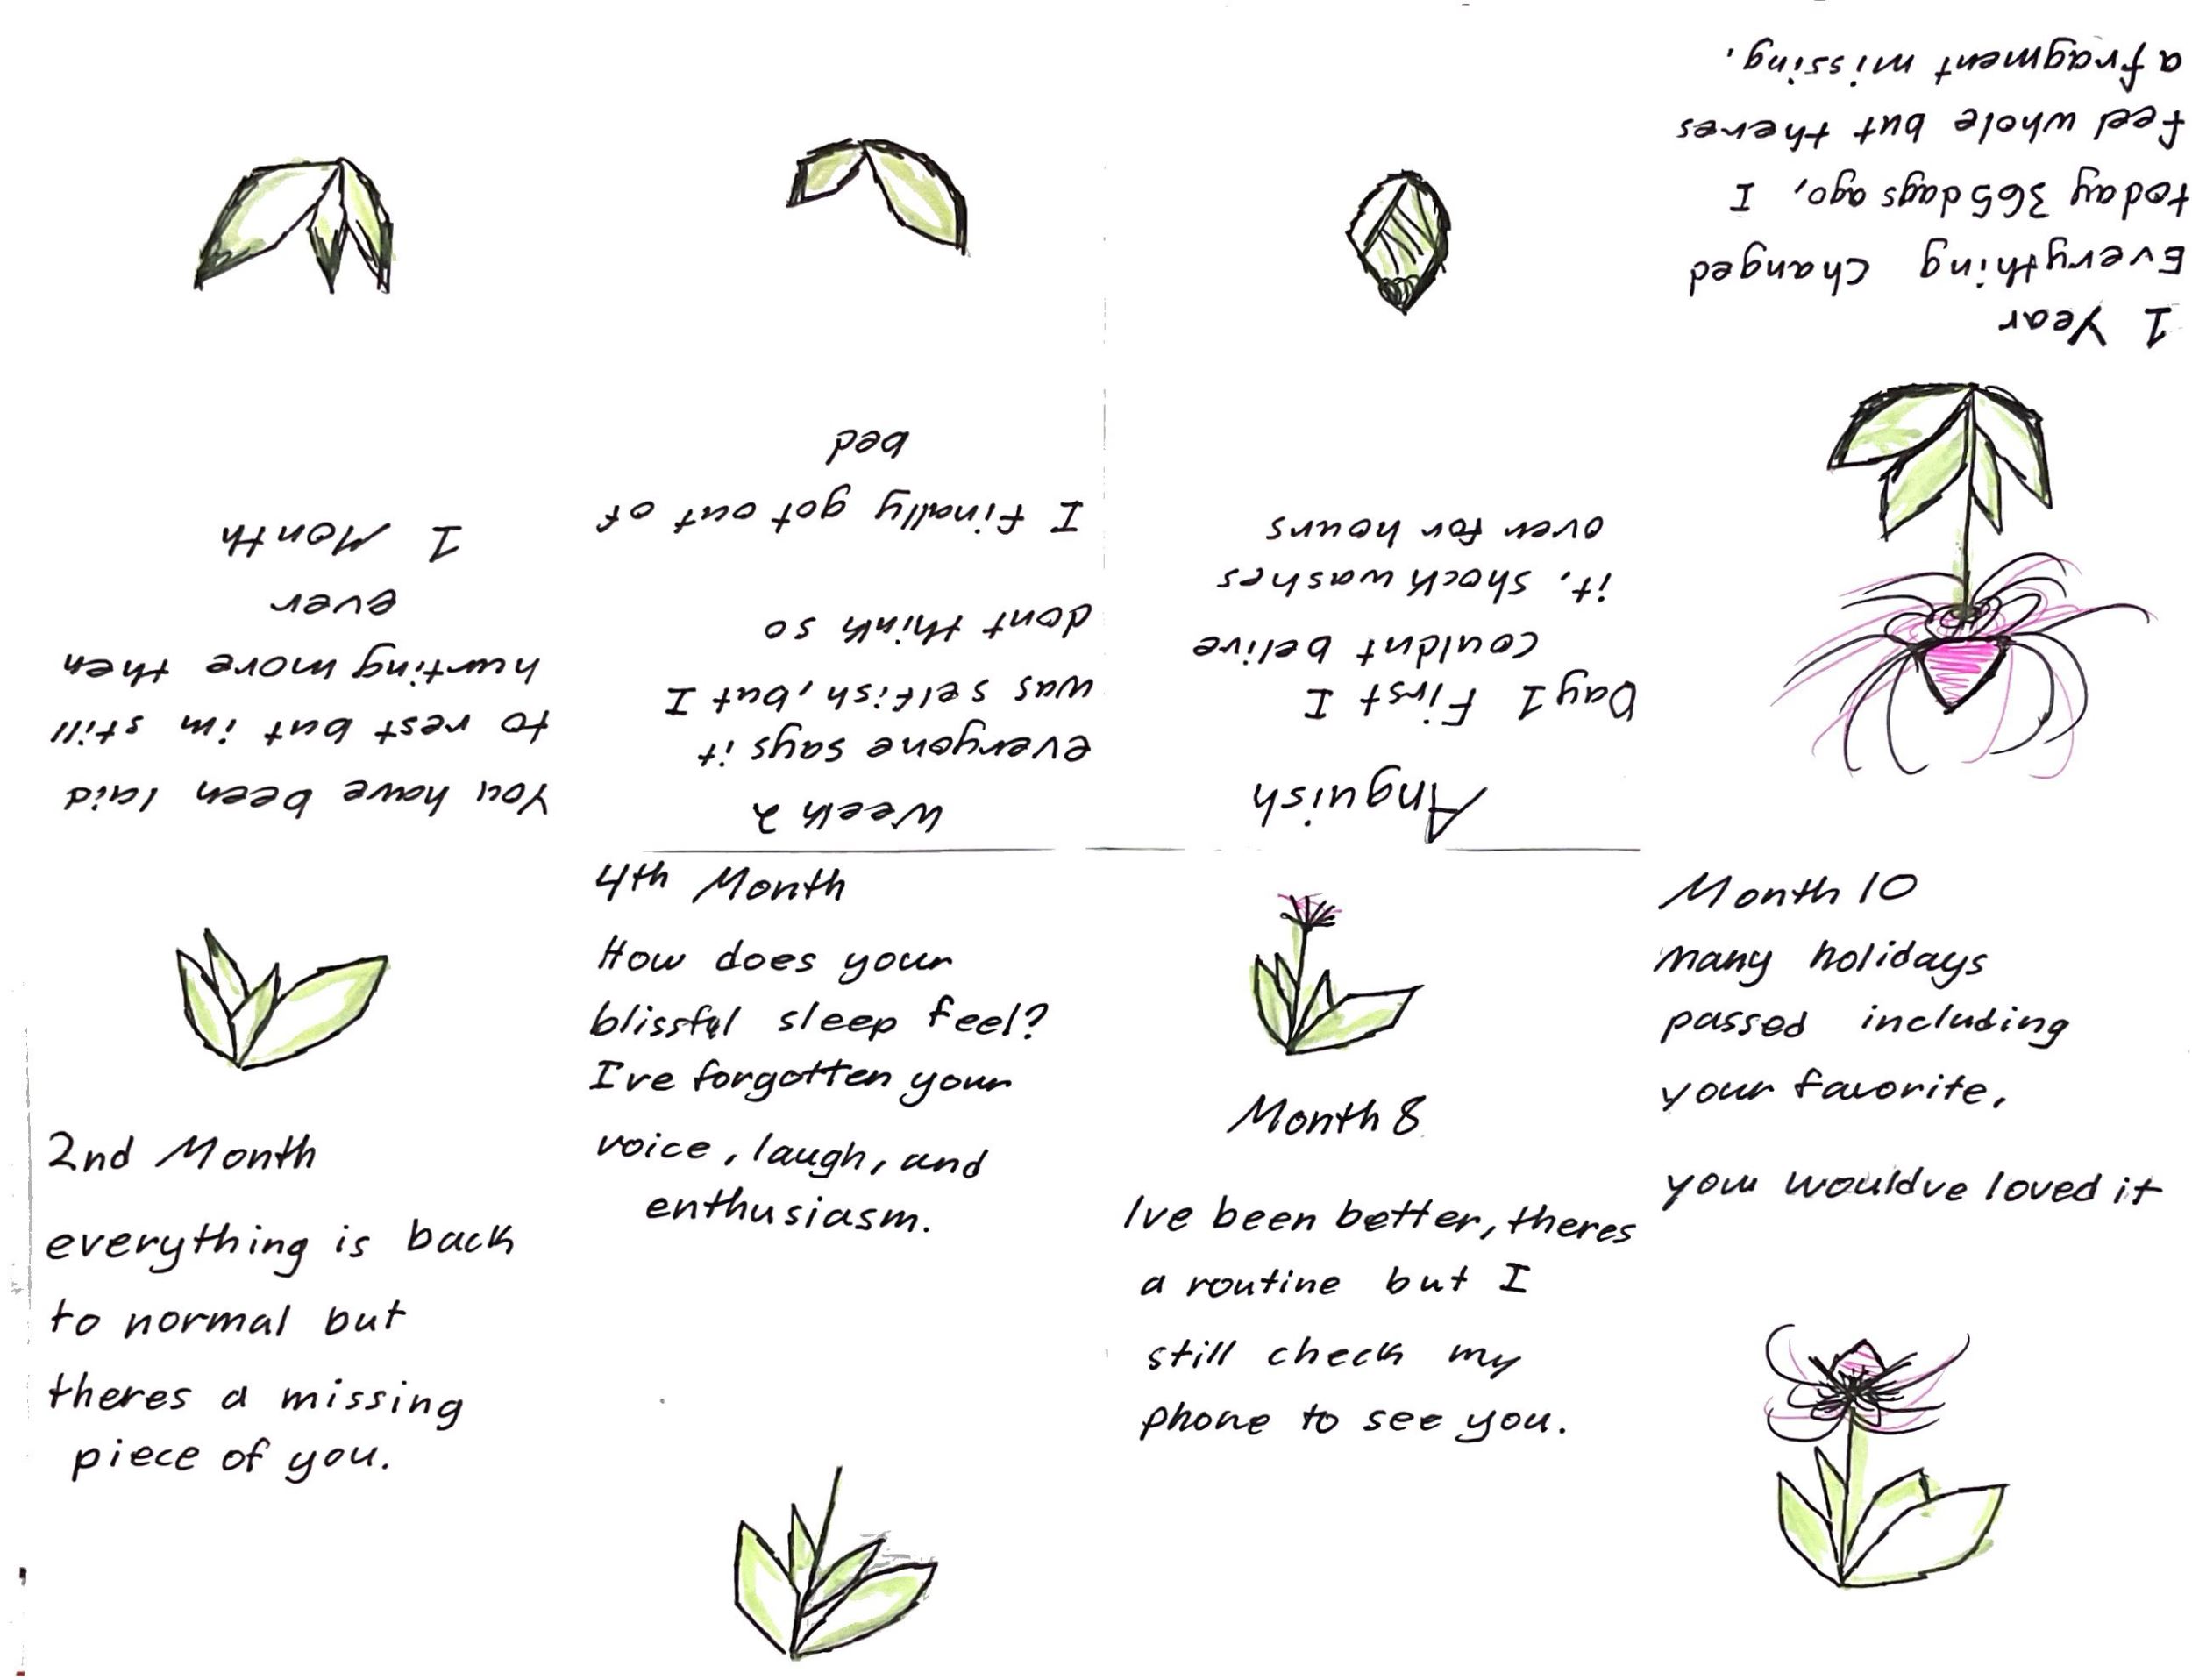 Anguish
Day1 First I
couldnt belive
it, shock washes
over for hours
Week 2
everyone says it
was selfish, but I
dont think so
I finally got out of
bed
You have been laid
to rest but im still
hurting more then
ever
1 Month
2nd Month
everything is back
to normal but
theres a missing
piece of you.
4th Month
How does your
blissful sleep feel?
I've forgotten your
voice, laugh, and
enthusiasm.
Month 8
Ive been better, theres
a routine but I
still check my
phone to see you.
Month 10
many holidays
passed including
your favorite,
you wouldve loved it
1 Year
Everything Changed
today 365 days ago, I
feel whole but theres
a fragment missing.